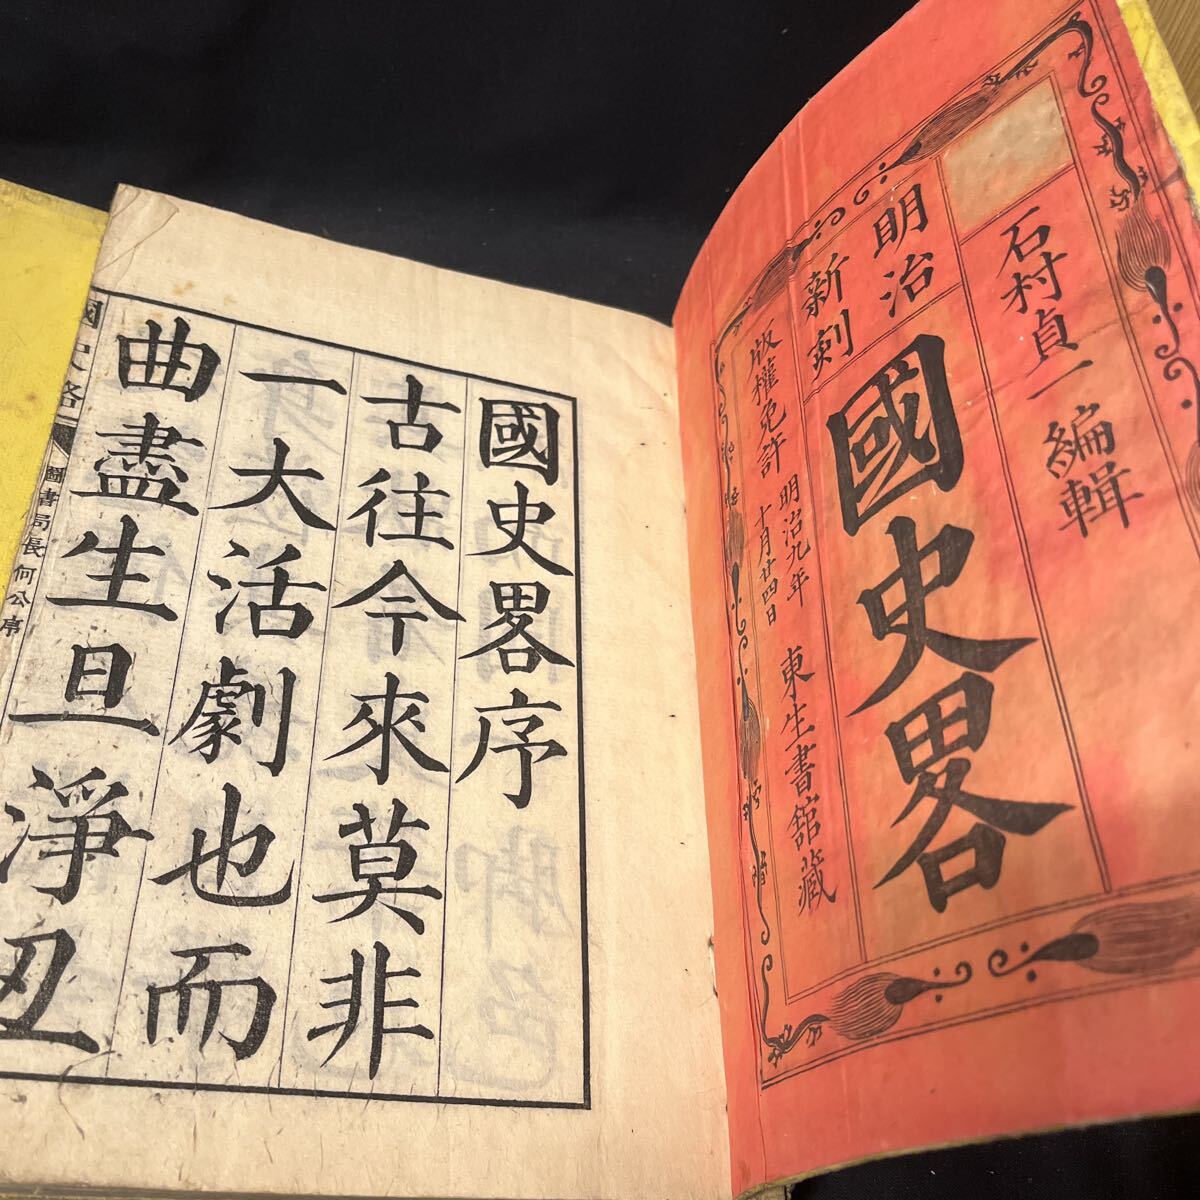 石村貞一編輯
國史畧
明治新刻
版權免許 明治九年十月廿四日 東生書舘藏
國史畧序
古往今來莫非
一大活劇也而
曲盡生旦淨丑
國史略
圖書局長何公序